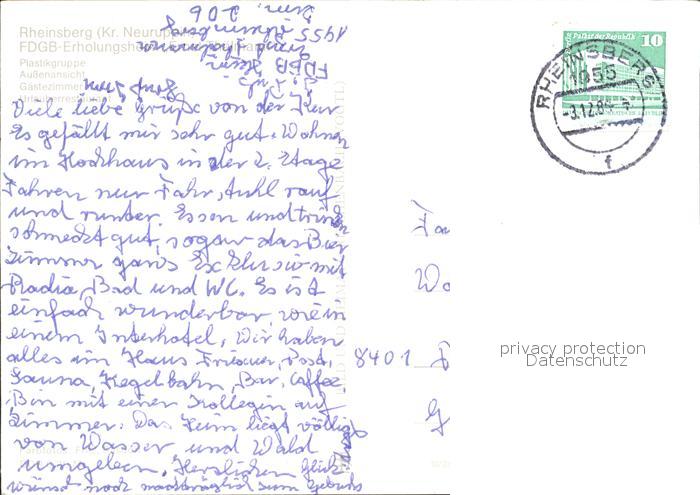 Rheinsberg (Kr. Neuruppin)
FDGB-Erholungsheim
Plastikgruppe
Außenansicht
Gästezimmer
Zim. 206
1955 Rheinsberg
FDGB Heim
Viele liebe Grüße von der Kur
Es gefällt mir sehr gut. Wohnen
im Hochhaus in der 2. Etage
Fahren nur Fahrstuhl rauf
und runter. Essen und trinken
schmeckt gut, sogar das Bier
Zimmer ganz Exklusiv mit
Radio, Bad und WC. Es ist
einfach wunderbar, wie in
einem Interhotel, Wir haben
alles im Haus Friseur, Post,
Sauna, Kegelbahn, Bar, Caffee
Bin mit einer Kollegin auf
Zimmer. Das Heim liegt völlig
von Wasser und Wald
umgeben. Herzlichen Glück
wunsch noch nachträglich zum Geburts
Palast der Republik 10
RHEINSBERG
1955
-3.12.8
f
Fa
Wo
8401
privacy protection
Datenschutz